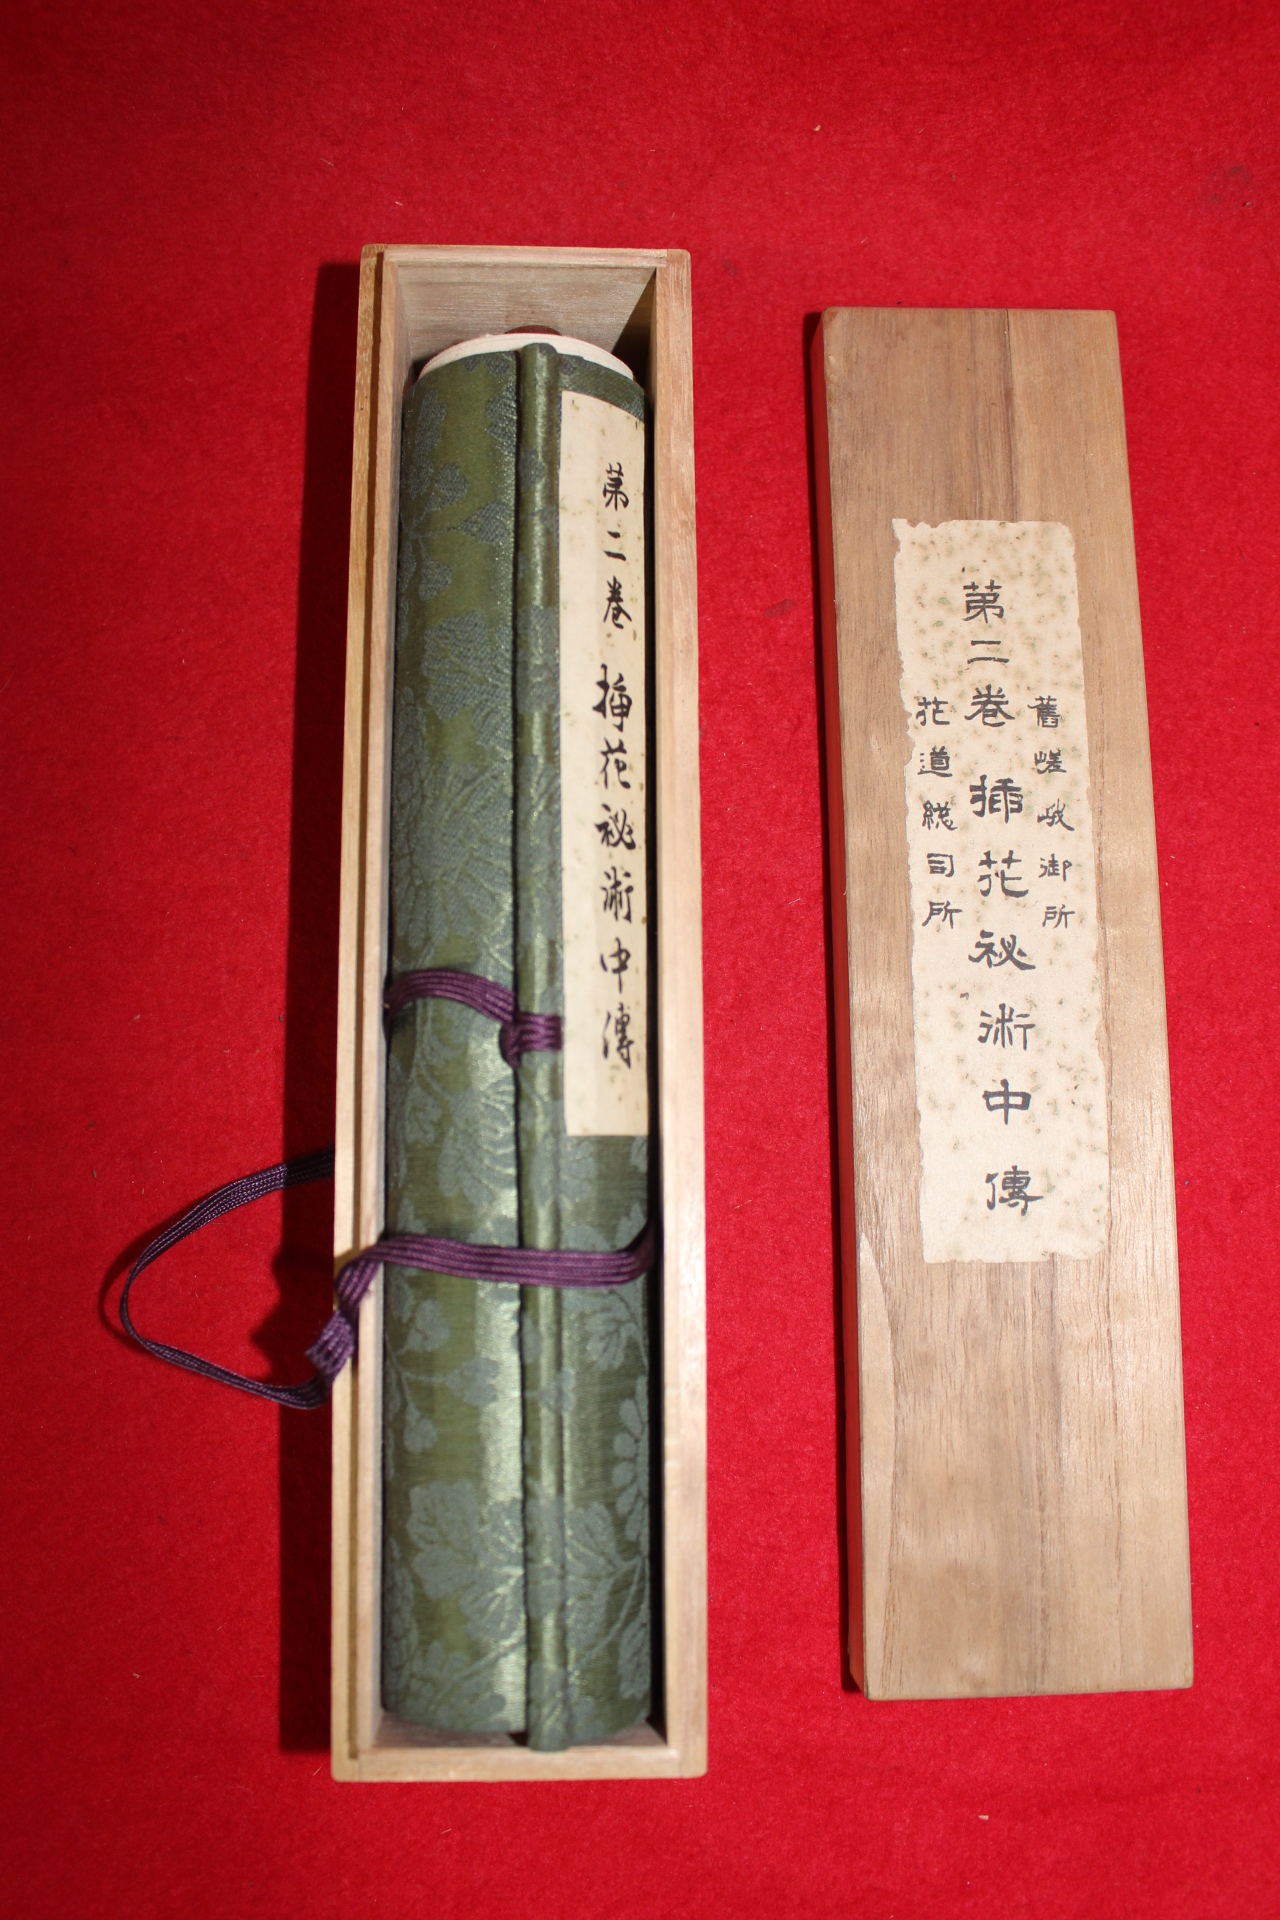 第二巻 挿花祕術中傳
舊嵯峨御所
第二巻 挿花祕術中傳
花道総司所